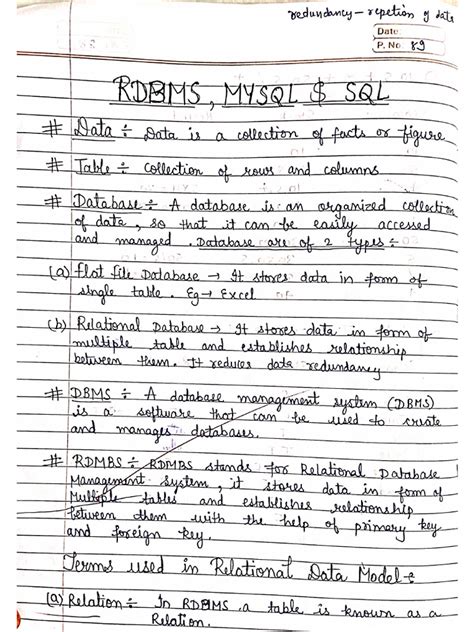 redundancy – repetion of data
Date:
P. No. 89
RDBMS, MYSQL $ SQL
# Data ÷ Data is a collection of facts or figure
# Table ÷ collection of rows and columns
# Database ÷ A database is an organized collection
of data, so that it can be easily accessed
and managed. Database are of 2 types ÷
(a) flat file Database → It stores data in form of
single table. Eg → Excel
(b) Relational Database → It stores data in form of
multiple table and establishes relationship
between them. It reduces data redundancy
# DBMS ÷ A database management system (DBMS)
is a software that can be used to create
and manages databases.
# RDMBS ÷ RDMBS stands for Relational Database
Management System, it stores data in form of
Multiple tables and establishes relationship
between them with the help of primary key
and foreign key.
Terms used in Relational Data Model ÷
(a) Relation ÷ In RDBMS a table is known as a
Relation.